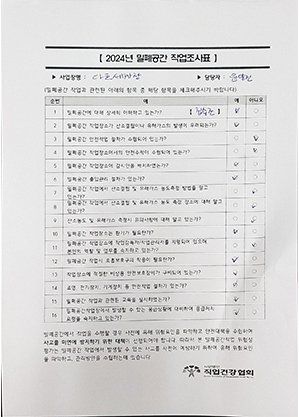 【 2024년 밀폐공간 작업조사표 】
▸ 사업장명 : ▸ 담당자 :
(밀폐공간 작업과 관련된 아래의 항목 중 해당 항목을 체크해주시기 바랍니다)
순번 예 아니오
1 밀폐공간에 대해 상세히 이해하고 있는가?
2 밀폐공간 작업장소가 산소결핍이나 유해가스의 발생이 우려되는가?
3 밀폐공간 안전작업 절차가 수립되어 있는가?
4 밀폐공간 작업장소에서의 안전수칙이 수립되어 있는가?
5 밀폐공간 작업장소에 감시인을 배치하였는가?
6 밀폐공간 출입관리 절차가 있는가?
7 밀폐공간 작업에서 산소결핍 및 유해가스 농도측정 방법을 알고 있는가?
8 밀폐공간 작업에서 산소결핍 및 유해가스 농도 측정 장소에 대해 알고 있는가?
9 산소농도 및 유해가스 측정시 고려사항에 대해 알고 있는가?
10 밀폐공간 작업장소는 환기가 필요한가?
11 밀폐공간 작업장소에 작업감독자/작업관리자를 지정되어 있으며 본인의 역할 및 업무를 숙지하고 있는가?
12 밀폐공간 작업시 호흡보호구의 착용이 필요한가?
13 작업장소에 적절한 비상용 안전보호장비가 구비되어 있는가?
14 조명, 전기장치, 기계장치 등 안전작업 절차가 있는가?
15 밀폐공간 작업과 관련한 교육을 실시하였는가?
16 밀폐공간작업장에서 발생할 수 있는 응급상황에 대비하여 응급처치 요령을 숙지하고 있는가?
밀폐공간에서 작업을 수행할 경우 사전에 유해 위험요인을 파악하고 안전대책을 수립하여
사고를 미연에 방지하기 위한 대책이 선행되어야 합니다. 따라서 본 밀폐공간작업 위험성
평가는 밀폐공간 작업에서 발생할 수 있는 사고를 사전에 예방하기 위하여 유해 위험요인
을 파악하고, 관리방안을 조치하는데 있습니다.
직업건강협회